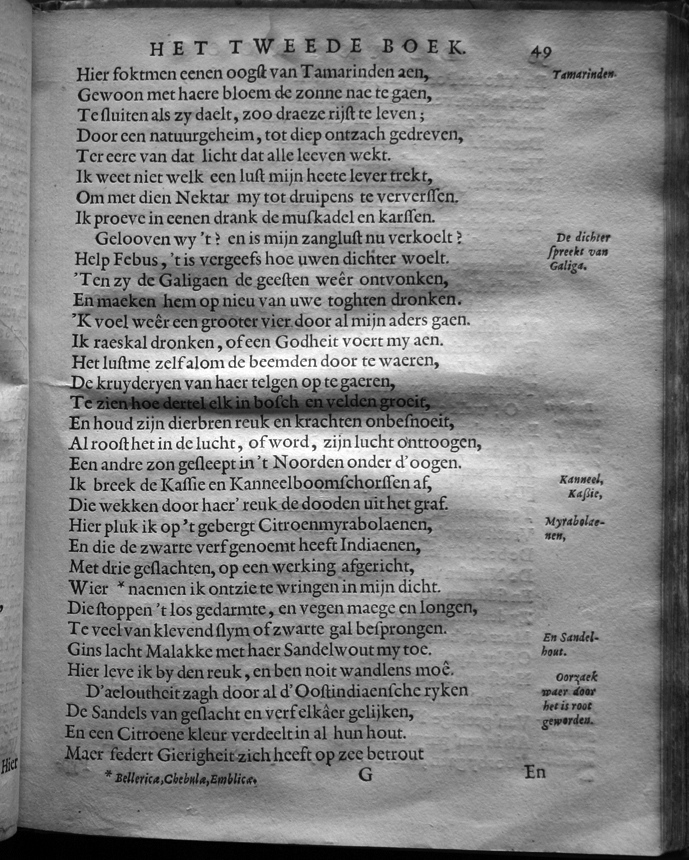 HET TWEEDE BOEK. 49
Hier foktmen eenen oogſt van Tamarinden aen,
Tamarinden.
Gewoon met haere bloem de zonne nae te gaen,
Te ſluiten als zy daelt, zoo draeze rijſt te leven;
Door een natuurgeheim, tot diep ontzach gedreven,
Ter eere van dat licht dat alle leeven wekt.
Ik weet niet welk een luſt mijn heete lever trekt,
Om met dien Nektar my tot druipens te ververſſen.
Ik proeve in eenen drank de muſkadel en karſſen.
Gelooven wy 't? en is mijn zangluſt nu verkoelt?
De dichter
ſpreekt van
Galiga.
Help Febus, 't is vergeefs hoe uwen dichter woelt.
'Ten zy de Galigaen de geeſten weêr ontvonken,
En maeken hem op nieu van uwe toghten dronken.
'K voel weêr een grooter vier door al mijn aders gaen.
Ik raeskal dronken, of een Godheit voert my aen.
Het luſtme zelf alom de beemden door te waeren,
De kruyderyen van haer telgen op te gaeren,
Te zien hoe dertel elk in boſch en velden groeit,
En houd zijn dierbren reuk en krachten onbeſnoeit,
Al rooſt het in de lucht, of word, zijn lucht onttoogen,
Een andre zon geſleept in 't Noorden onder d'oogen.
Ik breek de Kaſſie en Kanneelboomſchorſſen af,
Kanneel,
Kaſsie,
Die wekken door haer' reuk de dooden uit het graf.
Hier pluk ik op 't gebergt Citroenmyrabolaenen,
Myrabolae-
nen,
En die de zwarte verf genoemt heeft Indiaenen,
Met drie geſlachten, op een werking afgericht,
Wier * naemen ik ontzie te wringen in mijn dicht.
Die ſtoppen 't los gedarmte, en vegen maege en longen,
Te veel van klevend ſlym of zwarte gal beſprongen.
Gins lacht Malakke met haer Sandelwout my toe.
En Sandel-
hout.
Hier leve ik by den reuk, en ben noit wandlens moê.
D'aeloutheit zagh door al d'Ooſtindiaenſche ryken
Oorzaek
waer door
het is root
geworden.
De Sandels van geſlacht en verf elkâer gelijken,
En een Citroene kleur verdeelt in al hun hout.
Maer ſedert Gierigheit zich heeft op zee betrout
* Bellericæ, Chebulæ, Emblicæ.
G
En
Hier